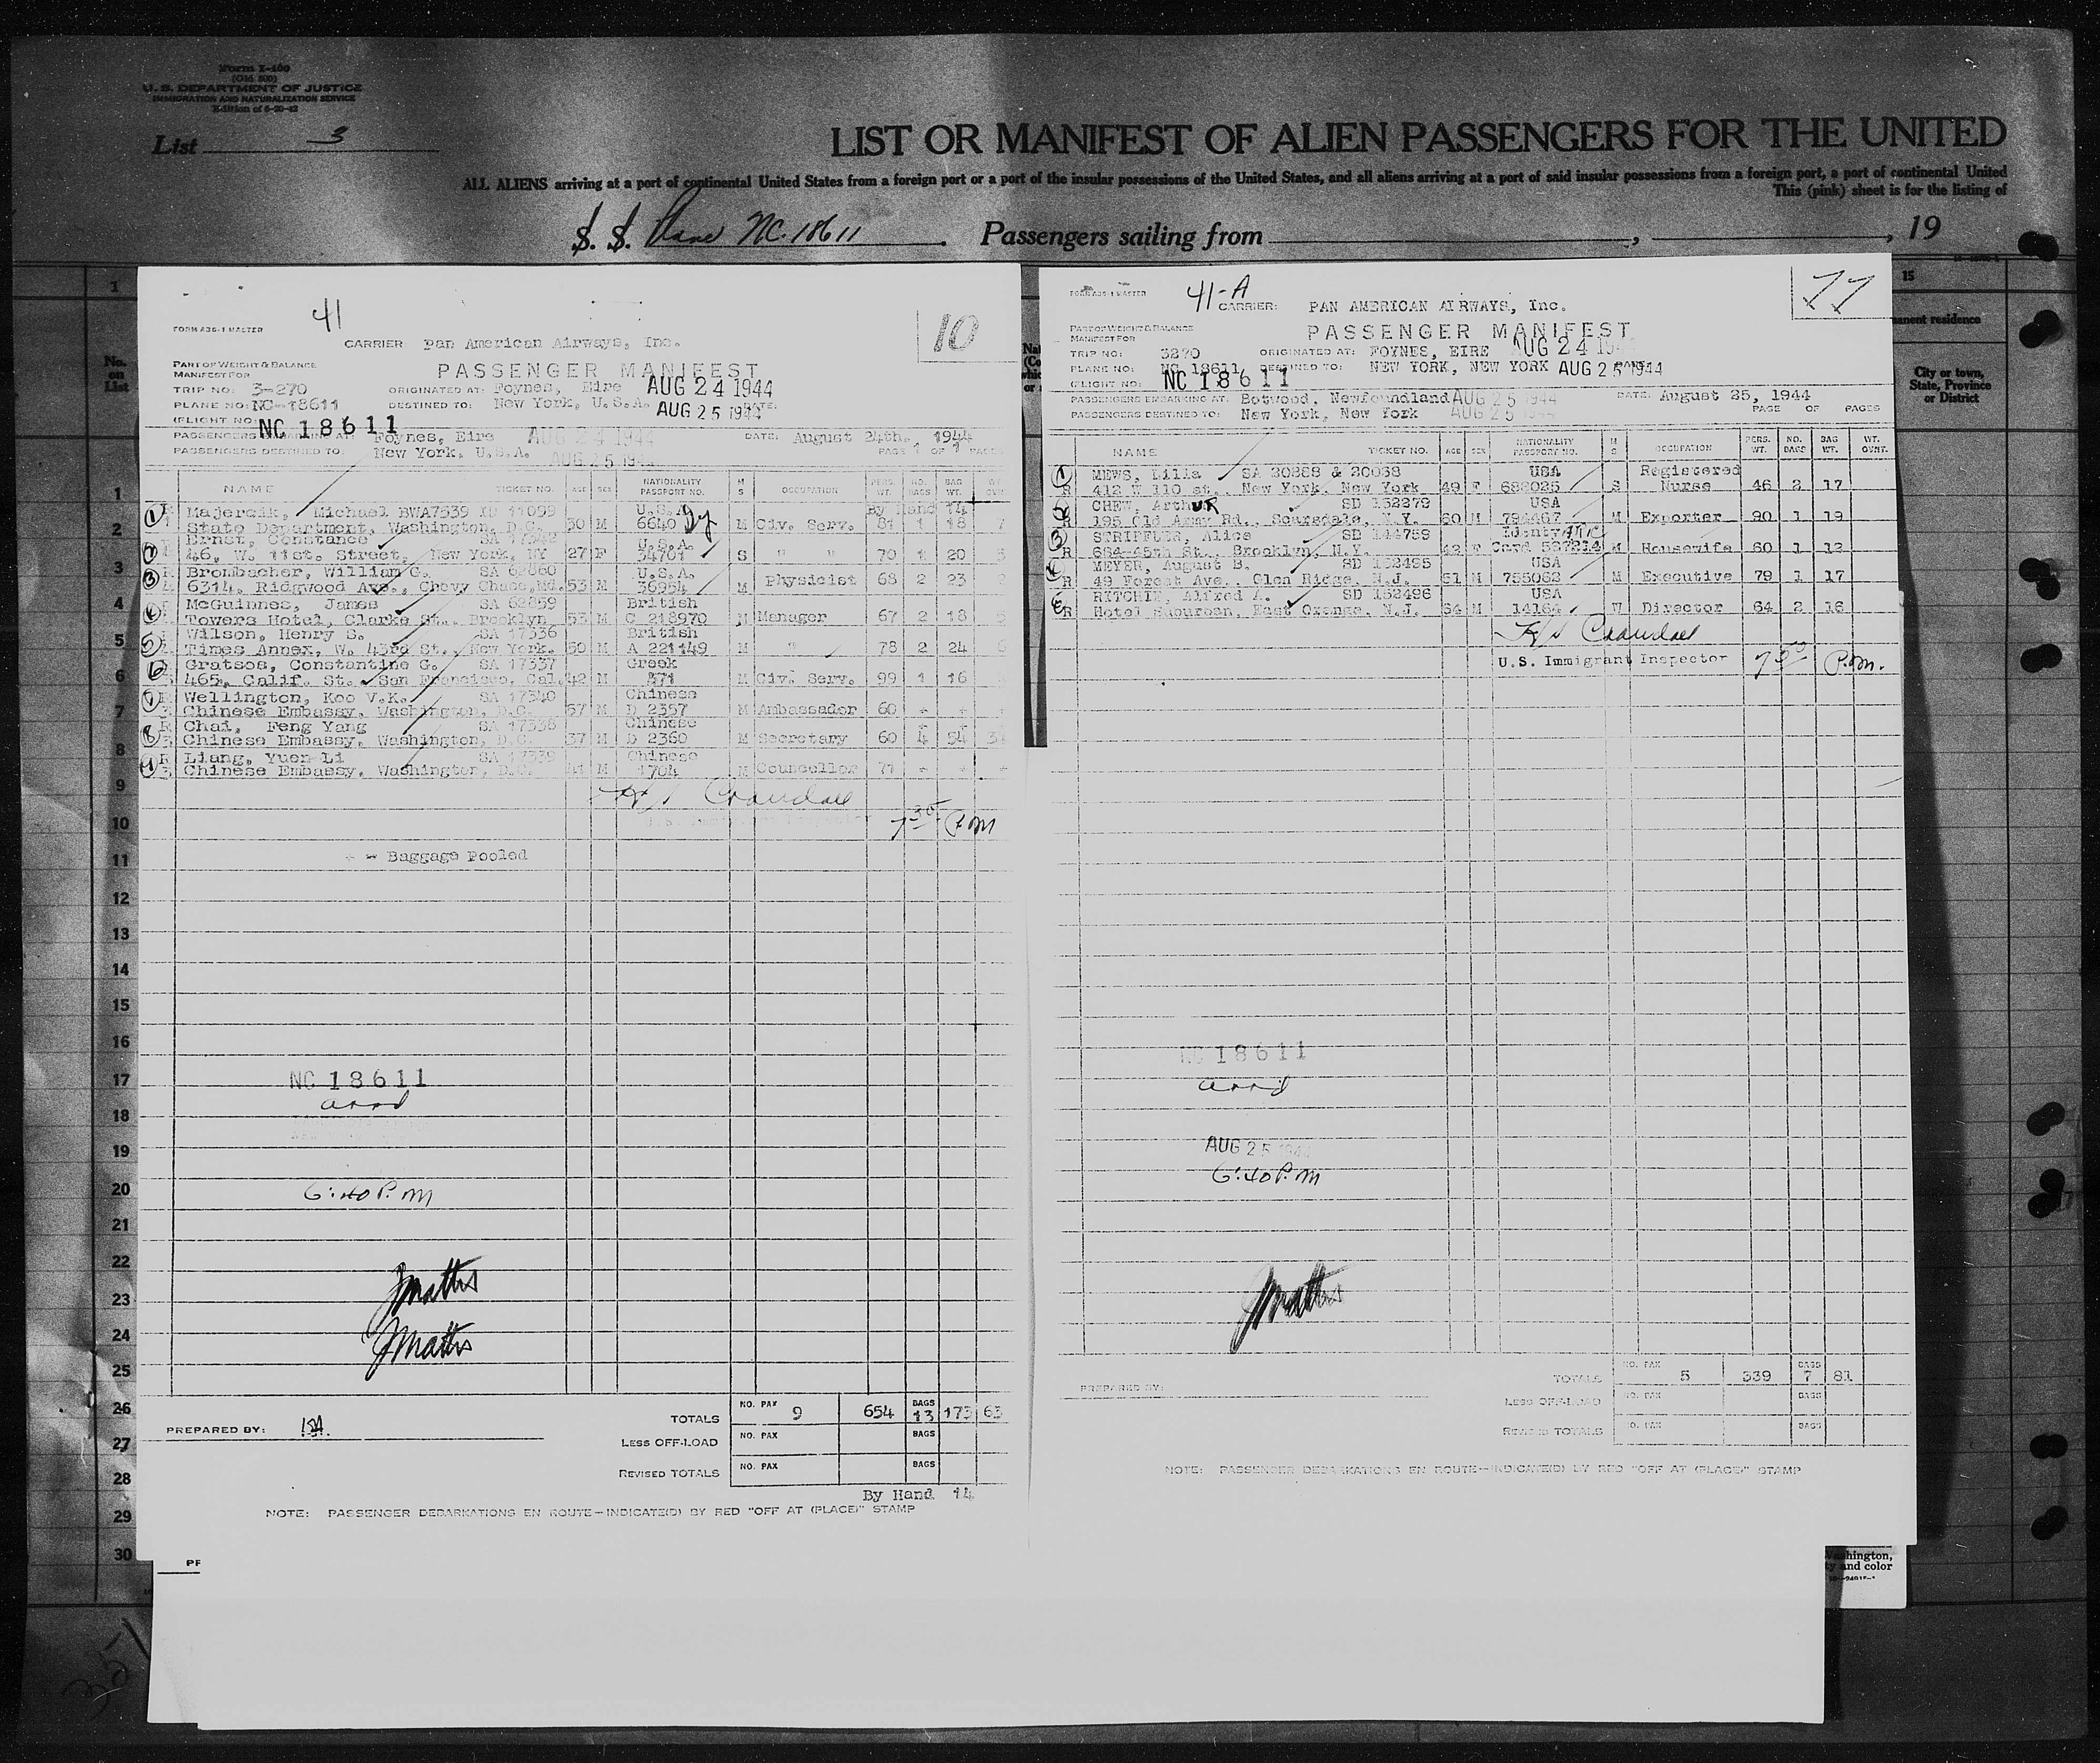 Form I-400
(Old 500)
U. S. DEPARTMENT OF JUSTICE
IMMIGRATION AND NATURALIZATION SERVICE
Edition of 6-20-42
List 3
LIST OR MANIFEST OF ALIEN PASSENGERS FOR THE UNITED
ALL ALIENS arriving at a port of continental United States from a foreign port or a port of the insular possessions of the United States, and all aliens arriving at a port of said insular possessions from a foreign port, a port of continental United
This (pink) sheet is for the listing of
S. S. Plane NC. 18611 . Passengers sailing from , , 19
41
10
FORM A36-1 MASTER
CARRIER Pan American Airways, Inc.
PART OF WEIGHT & BALANCE
MANIFEST FOR
PASSENGER MANIFEST
TRIP NO: 3-270 ORIGINATED AT: Foynes, Eire AUG 24 1944
PLANE NO: NC-18611 DESTINED TO: New York, U.S.A. AUG 25 1944 DATE:
(FLIGHT NO: NC 18611
PASSENGERS EMBARKING AT: Foynes, Eire AUG 24 1944 DATE: August 24th., 1944
PASSENGERS DESTINED TO: New York, U.S.A. AUG 25 194 PAGE 1 OF 1 PAGES
NAME TICKET NO. AGE SEX NATIONALITY PASSPORT NO. M S OCCUPATION PERS. WT. NO. BAGS BAG WT.
By Hand 14
1 Majercik, Michael BWA7539 ID 11099 U.S.A.
State Department, Washington, D.C. 30 M 6640 M Civ. Serv. 81 1 18 7
2 Ernst, Constance SA 17342 U.S.A.
46, W. 11st. Street, New York, NY 27 F 34701 S " " 70 1 20 5
3 Brombacher, William G. SA 62860 U.S.A.
6314, Ridgwood Ave., Chevy Chace, Md. 53 M 36954 M Physicist 68 2 23
4 McGuinnes, James SA 62859 British
Towers Hotel, Clarke St., Brooklyn 53 M C 218970 M Manager 67 2 18 5
5 Wilson, Henry S. SA 17336 British
Times Annex, W. 43rd St., New York. 50 M A 221149 M " 78 2 24 6
6 Gratsos, Constantine G. SA 17337 Greek
465, Calif. St., San Francisco, Cal. 42 M 471 M Civ. Serv. 99 1 16
7 Wellington, Koo V.K. SA 17340 Chinese
Chinese Embassy, Washington, D.C. 57 M D 2357 M Ambassador 60 + +
8 Chai, Feng Yang SA 17338 Chinese
Chinese Embassy, Washington, D.C. 37 M D 2360 M Secretary 60 4 54 34
9 Liang, Yuen Li SA 17339 Chinese
Chinese Embassy, Washington, D.C. 41 M 1704 M Councellor 71 + +
Crandall
7 30 P.M
+ = Baggage Pooled
NC 18611
arrd
6:40 P.M
JMatthis
JMatthis
TOTALS NO. PAX 9 654 BAGS 13 173 63
PREPARED BY:
LESS OFF-LOAD NO. PAX BAGS
REVISED TOTALS NO. PAX BAGS
By Hand 14
NOTE: PASSENGER DEBARKATIONS EN ROUTE—INDICATE(D) BY RED "OFF AT (PLACE)" STAMP
41-A
77
FORM A36-1 MASTER
CARRIER: PAN AMERICAN AIRWAYS, Inc.
PART OF WEIGHT & BALANCE
MANIFEST FOR
PASSENGER MANIFEST
TRIP NO: 3270 ORIGINATED AT: FOYNES, EIRE AUG 24 19
PLANE NO: NC 18611 DESTINED TO: NEW YORK, NEW YORK AUG 25 1944
(FLIGHT NO: NC 18611
PASSENGERS EMBARKING AT: Botwood, Newfoundland AUG 25 1944 DATE: August 25, 1944
PASSENGERS DESTINED TO: New York, New York AUG 25 1944 PAGE OF PAGES
NAME TICKET NO. AGE SEX NATIONALITY PASSPORT NO. M S OCCUPATION PERS. WT. NO. BAGS BAG WT. WT. OVNT.
1 MEWS, Lilla SA 30888 & 20038 USA Registered
R 412 W 110 st., New York, New York 49 F 688025 S Nurse 46 2 17
2 CHEW, ArthUR SD 152279 USA
R 195 Old Army Rd., Scarsdale, N.Y. 60 M 794467 M Exporter 90 1 19
3 STRIFFLER, Alice SD 144759 Identy
R 664-45th St., Brooklyn, N.Y. 42 F Card 597214 M Housewife 60 1 12
4 MEYER, August B. SD 152495 USA
R 49 Forest Ave., Glen Ridge, N.J. 51 M 755062 M Executive 79 1 17
5 RITCHIE, Alfred A. SD 152496 USA
R Hotel Suburban, East Orange, N.J. 64 M 14164 W Director 64 2 16
Crandall
U.S. Immigrant Inspector 7 30 P.M.
NC 18611
arrd
AUG 25 1944
6:40 P.M
JMatthis
TOTALS NO. PAX 5 339 BAGS 7 81
PREPARED BY:
LESS OFF-LOAD NO. PAX BAGS
REVISED TOTALS NO. PAX BAGS
NOTE: PASSENGER DEBARKATIONS EN ROUTE—INDICATE(D) BY RED "OFF AT (PLACE)" STAMP
No. on List
1
2
3
4
5
6
7
8
9
10
11
12
13
14
15
16
17
18
19
20
21
22
23
24
25
26
27
28
29
30
15
anent residence
City or town,
State, Province
or District
PF
ashington,
ty and color
351